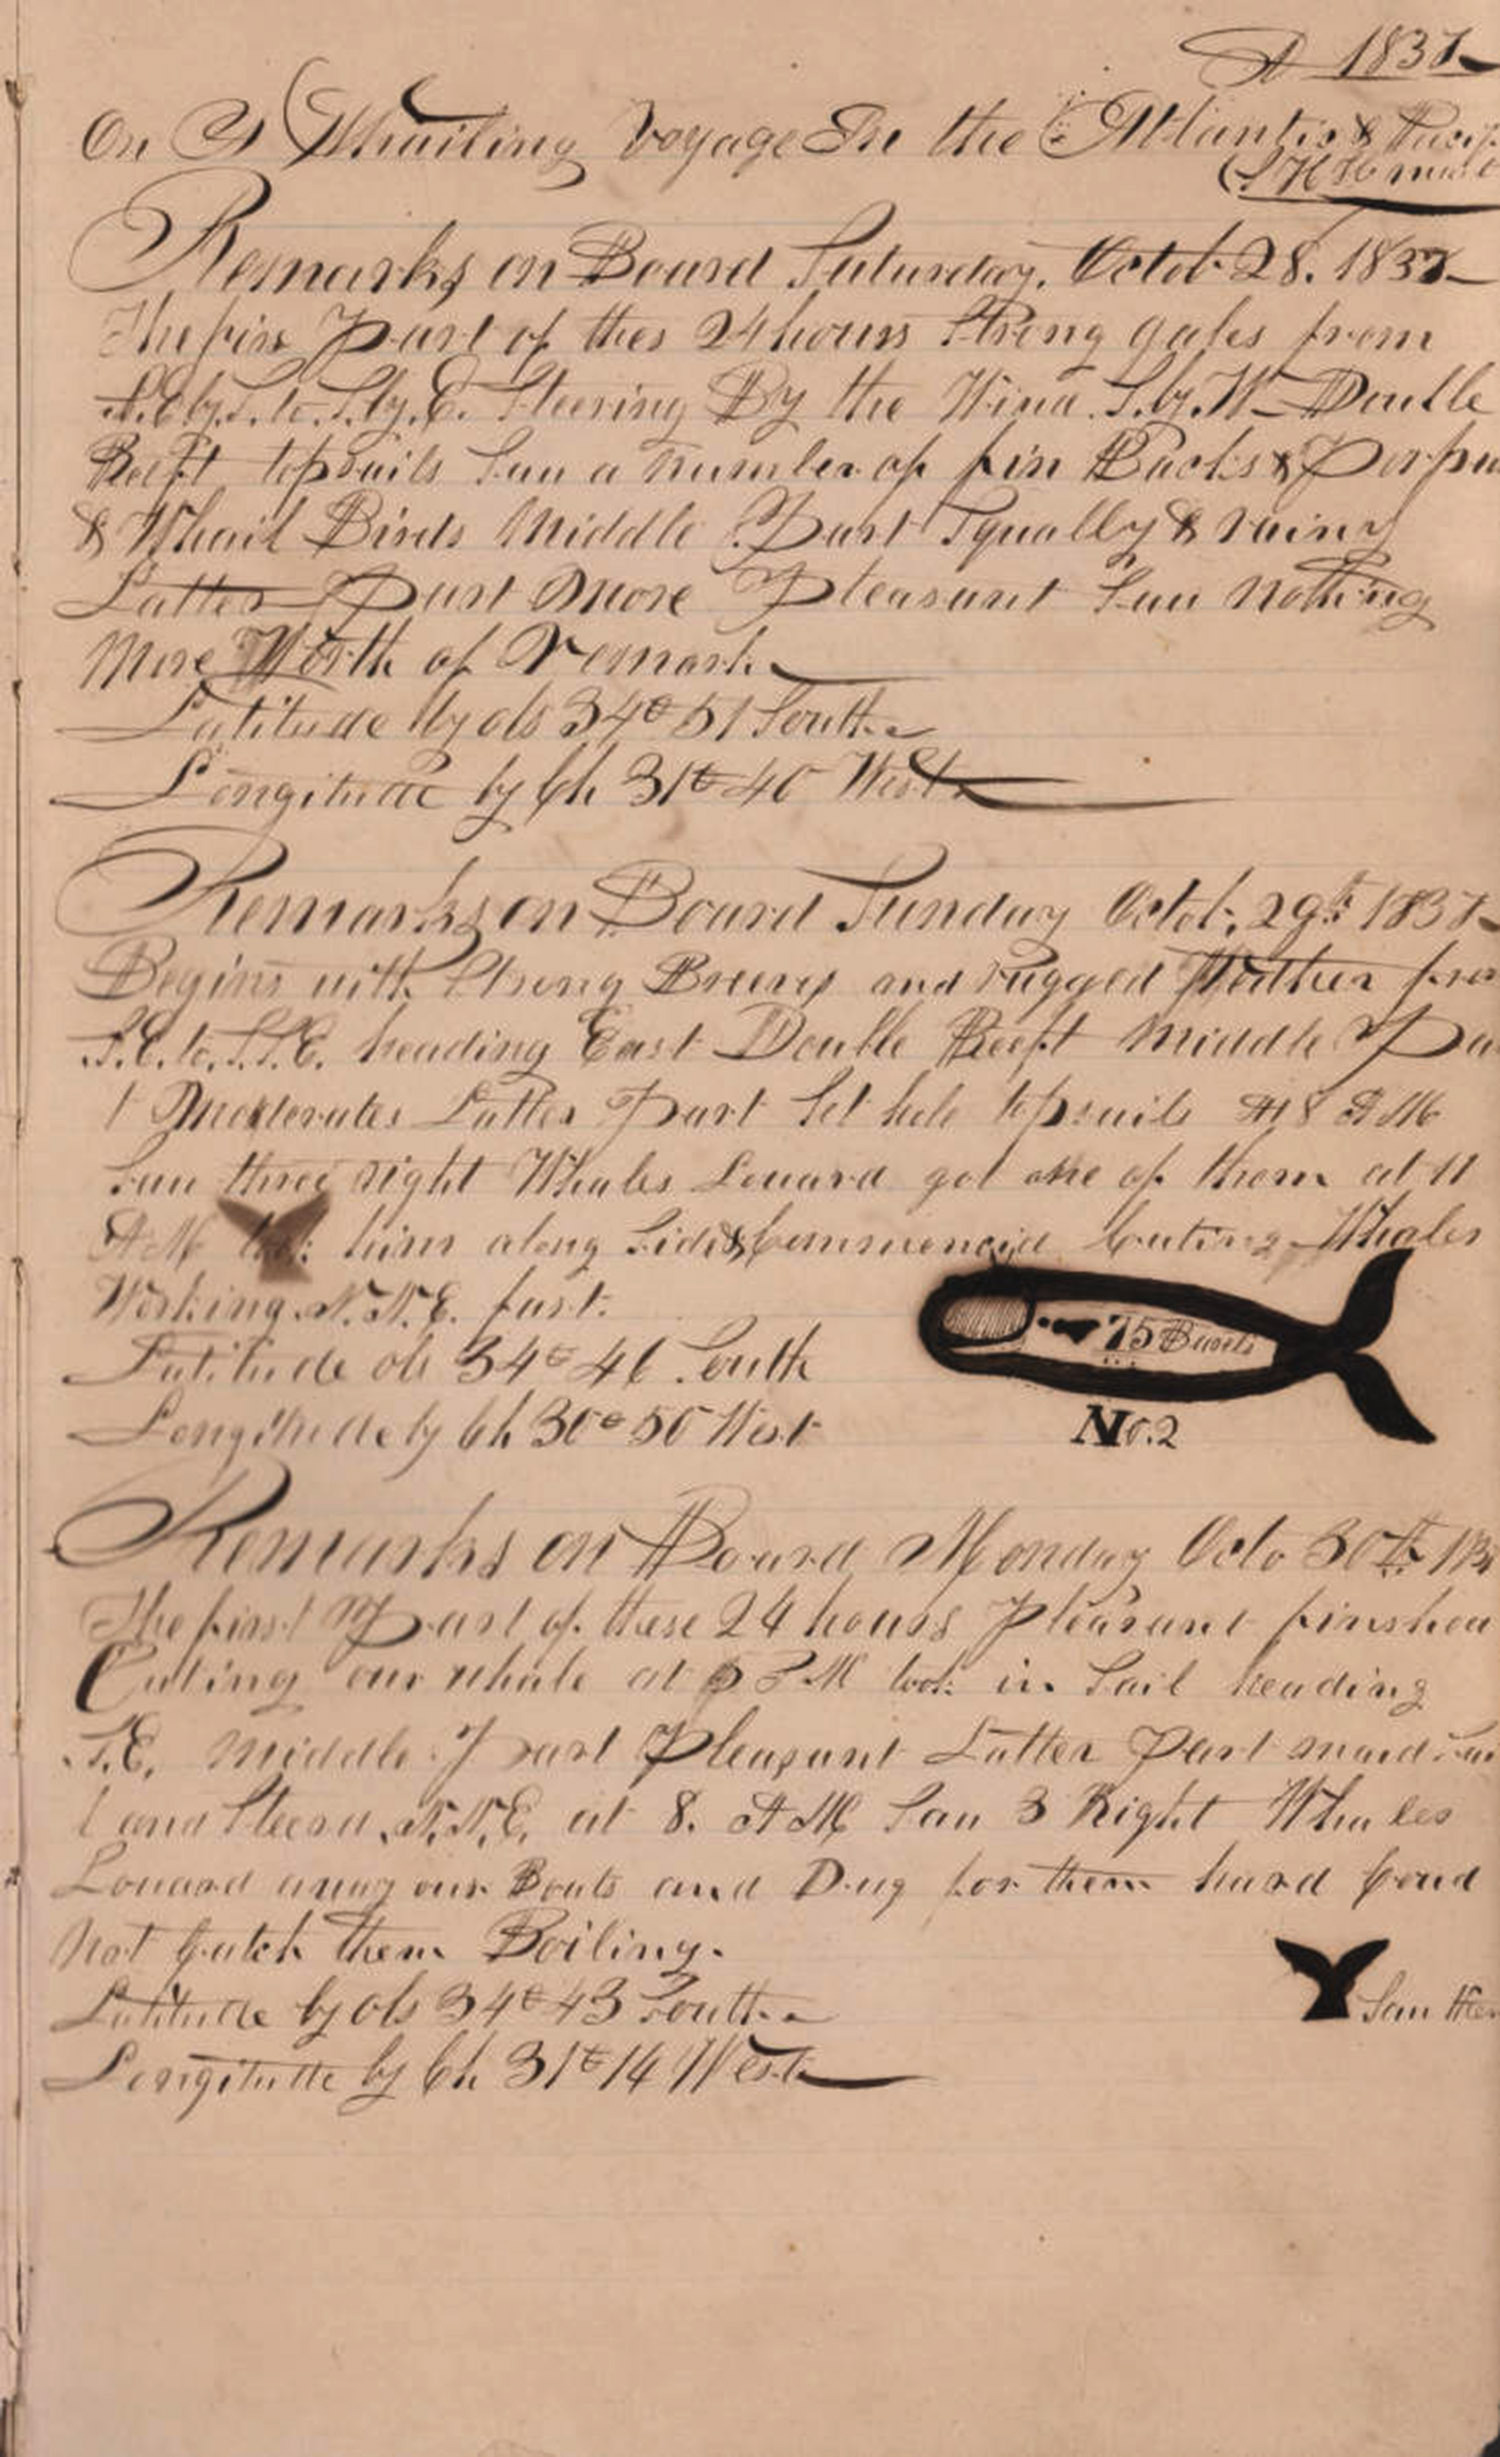 A 1837
On A Whailing Voyage In the Atlantic & Pacif
Remarks on Board Saturday. Octob. 28. 1837
The firs Part of thes 24 hours Strong gales from
S.E by. S. to. S. by. E. Steering By the Wind. S. by. W Double
Reeft topsails Sau a number of fin Backs & Porpu
& Whail Birds Middle Part Squally & rainy
Latter Part More Pleasant Sau Nothing
More Worth of Remark
Latitude by obs 34° 51 South
Longitude by Ch 31° 40 West
Remarks on Board Sunday Octob. 29th 1837
Begins with Strong Breezes and rugged Weather fro
S.E. to. S.S.E. heading East Double Reeft Middle Pa
t Moderates Latter Part Set hole topsails At 8 A M
Sau three right Whales Louard got one of them at 11
A M took him along Side & Commencid Cuting Whales
Working. N. N. E. fast.
75 Barels
Latitude obs 34° 46 South
Longitude by Ch 30° 50 West
No. 2
Remarks on Board Monday Octo 30th 183
The first Part of these 24 hours Pleasant finshed
Cuting our whale at 5 P M took in Sail heading
S.E. Middle Part Pleasant Latter Part maid Sai
l and Steerd. N. N. E. at 8. A M Sau 3 Right Whales
Louard auay our Boats and Dug for them hard Coud
Not Catch them Boiling.
Latitude by obs 34° 43 South
Sau thre
Longitude by Ch 31° 14 West